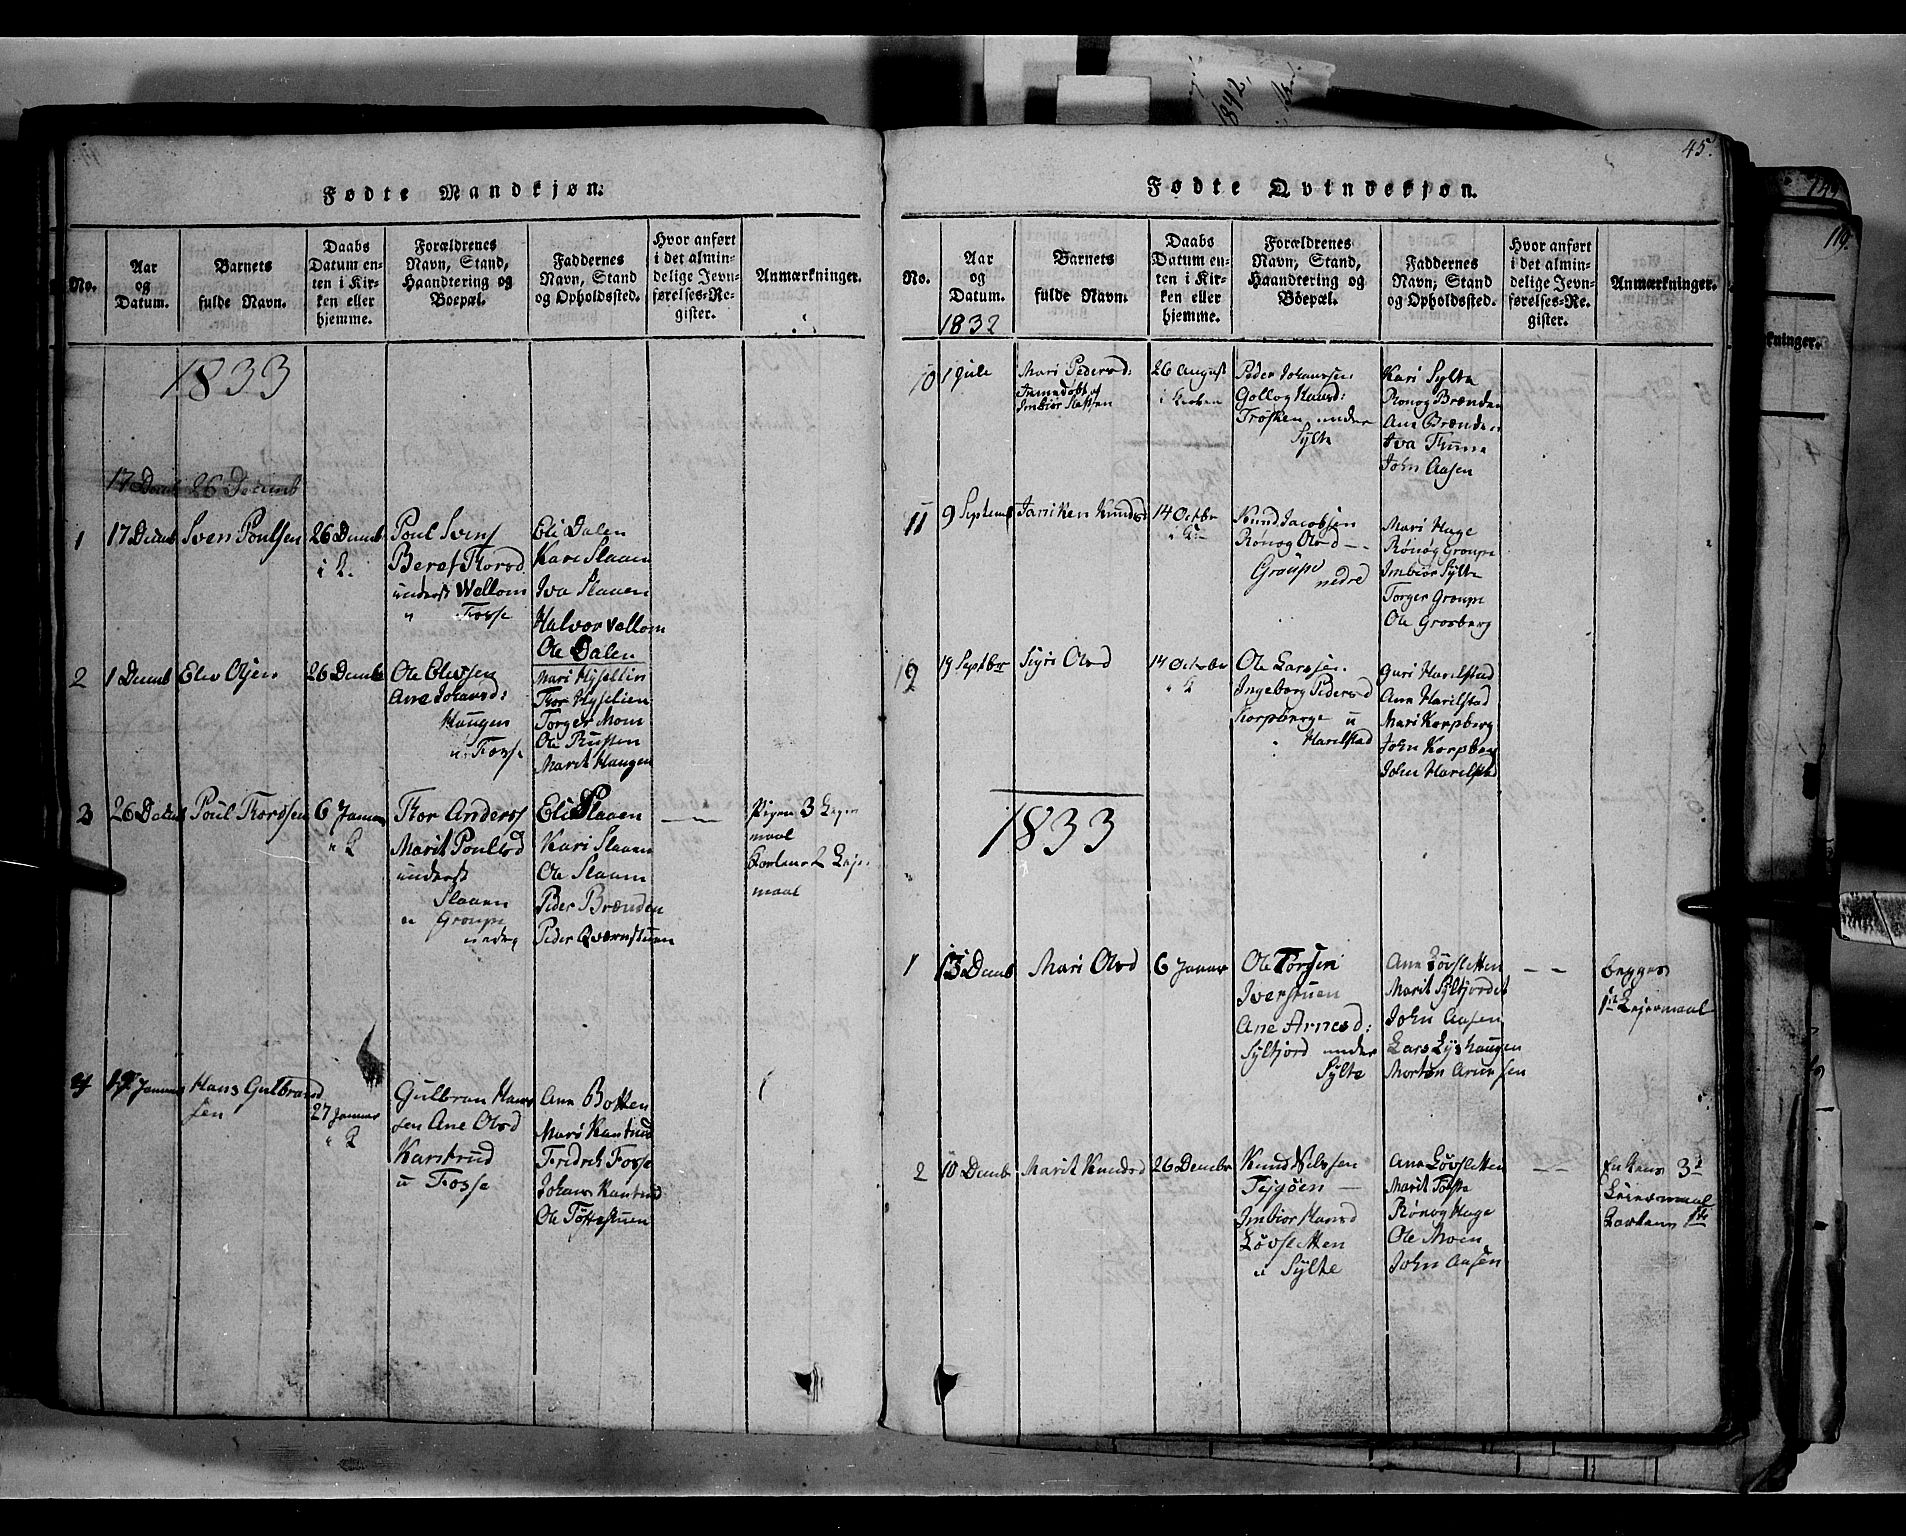 1842.
45.
119.
kninger.
Fødte Mandkjøn.
No.
Aar
og
Datum.
Barnets
fulde Navn.
Daabs
Datum en-
ten i Kir-
ken eller
hjemme.
Forældrenes
Navn, Stand,
Haandtering og
Boepæl.
Faddernes
Navn, Stand
og Opholdssted.
Hvor anført
i det almin-
delige Jevn-
førelses-Re-
gister.
Anmærkninger.
1833
17 Decmb 26 Decemb
1
17 Decmb
Sven Poulsen
26 Decmb
i K.
Poul Svens
Beret Thorsd
underst Wollom
u Fosse
Eli Dalen
Kari Slaaen
Iva Slaaen
Halvor Vollom
Ole Dalen
2
1 Decmb
Elev Olsen
26 Decmb
Ole Elevsen
Ane Johansd:
Haugen
u. Fosse
Mari Hyrettin
Thor Hyrettien
Torger Moen
Ole Rusten
Marit Haugen
3
26 Decmb
Poul Thorsen
6 Januar
K
Thor Anderss
Marit Poulsd
underst
Slaaen
u Groupe
nedre
Eli Slaaen
Kari Slaaen
Ole Slaaen
Peder Brænden
Peder Qværnstuen
Pigen 3 Leier
maal
Karlens 2 Leier
maal
4
17 Januar
Hans Gulbrand
sen
27 Januar
K
Gulbran Hans
sen Ane Olsd
Kantrud
u Fosse
Ane Botten
Mari Kantrud
Fredrik Fosse
Johans Kantrud
Ole Toftestuen
Fødte Qvindekjøn.
No.
Aar
og
Datum.
1832
Barnets
fulde Navn.
Daabs
Datum en-
ten i Kir-
ken eller
hjemme.
Forældrenes
Navn, Stand,
Haandtering og
Boepæl.
Faddernes
Navn, Stand
og Opholdssted.
Hvor anført
i det almin-
delige Jevn-
førelses-Re-
gister.
Anmærkninger.
10
1 Jule
Mari Pedersd:
Imbiør Sletten
26 August
i Kirken
Peder Johansen
Gollog Knudsd:
Trosken under
Sylte
Kari Sylte
Ronog Brænden
Ane Brænden
Iva
John Aasen
11
9 Septemb
Janiken Knudsd
14 Octbr
i K
Knud Jacobsen
Rønog Olsd
Groupe
nedre
Mari Hage
Rønog Groupe
Imbiør Sylte
Torger Groupe
Ole Grosberg
12
19 Septbr
Sigri Olsd
14 Octobr
K
Ole Larssen
Ingeborg Pedersd
Korpberge u
Harilstad
Guri Harilstad
Ane Harilstad
Mari Korpberg
John Korpberg
John Harilstad
1833
1
13 Decmb
Mari Olsd
6 Januar
Ole Torsen
Iverstuen
Ane Arnesd:
Syltjord under
Sylte
Ane Løvsletten
Marit Syltjordet
John Aasen
Lars Lyshaugen
Morten Arnesen
begges
1te Leiermaal
2
10 Decmb
Marit Knudsd
26 Decmbr
Knud Nilssen
Imbior Hansd
Løvsletten
u Sylte
Ane Løvsletten
Marit
Rønog Hage
Ole Moen
John Aasen
Enkens 3d
Leiermaal
Karlens 1te